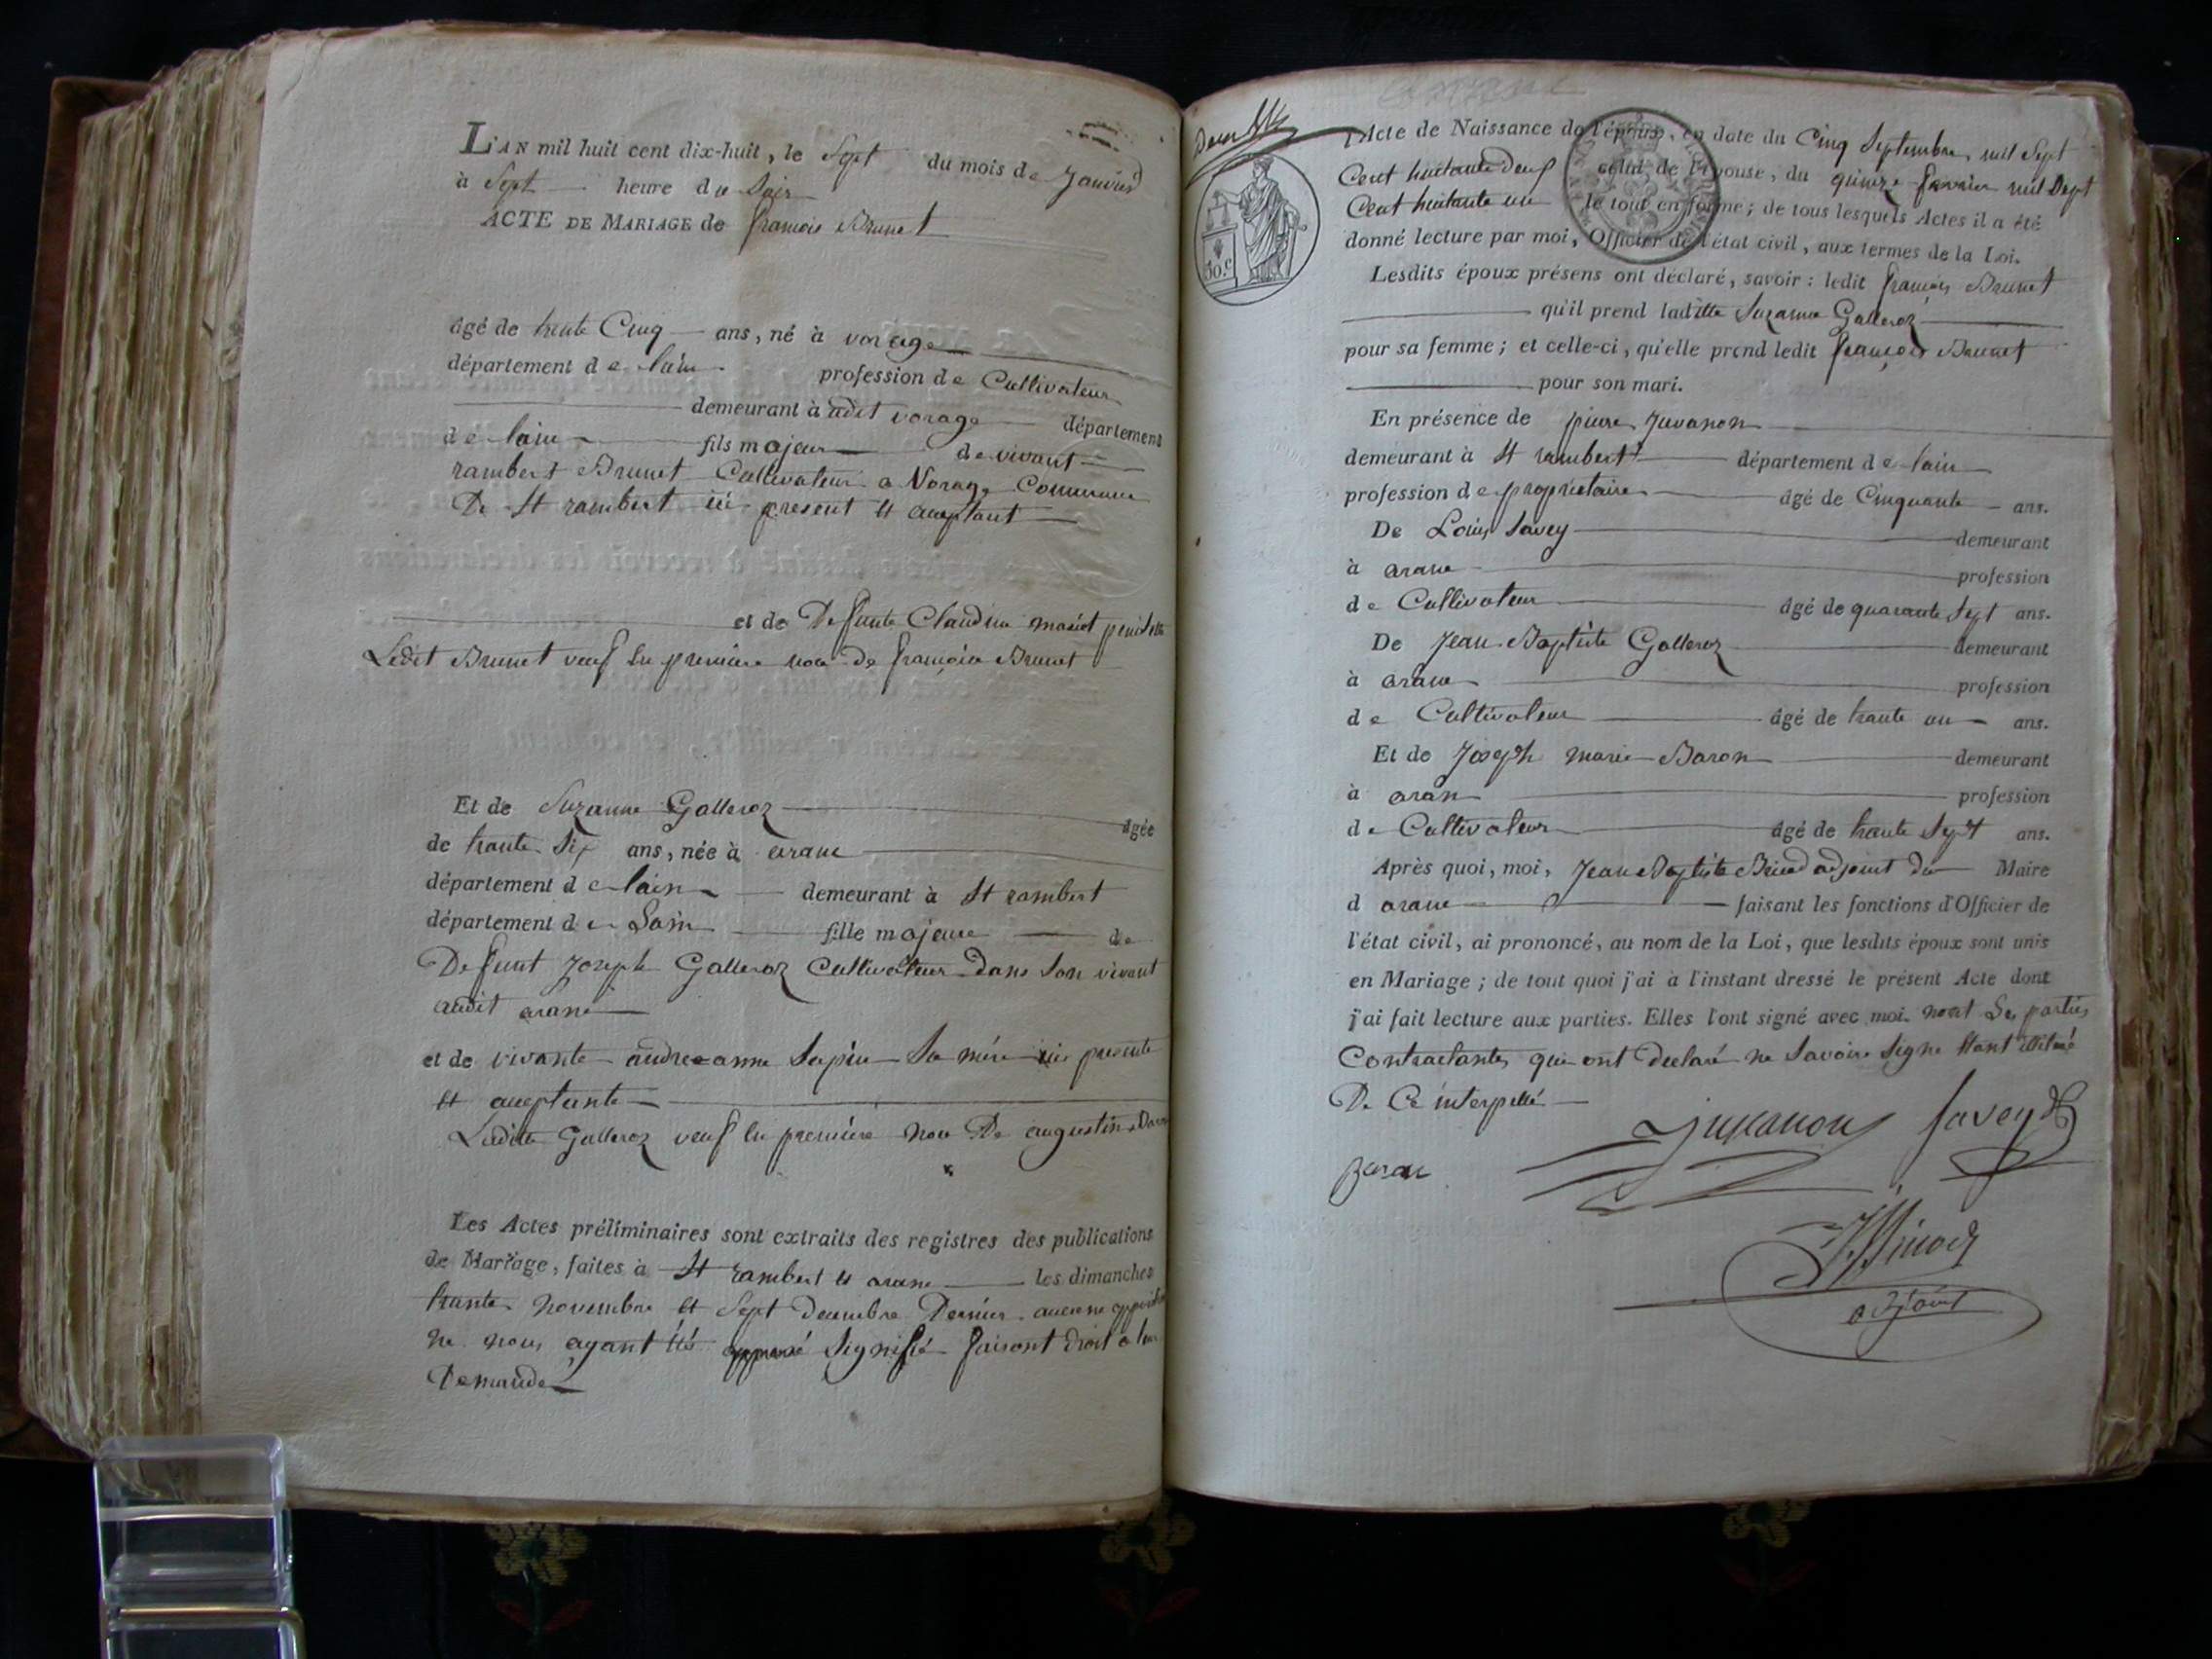 L'AN mil huit cent dix-huit, le Sept du mois de Janvier
à Sept heure du Soir
ACTE DE MARIAGE de françois Brunet
âgé de trente Cinq ans, né à vorage
département de lain profession de Cultivateur
demeurant à audit vorage département
de lain fils majeur de vivant
rambert Brunet Cultivateur a Vorage Commune
De St rambert ici present et aceptant
et de Defunte Claudine
Ledit Brunet veuf en premiere noce de françoise Brunet
Et de Suzanne Galleroz âgée
de trante Six ans, née à arane
département de lain demeurant à St rambert
département de Lain fille majeure de
Defunt Joseph Galleroz Cultivateur Dans Son vivant
audit arane
et de vivante andreanne Sapin Sa mère ici presente
et aceptante
Laditte Galleroz veuf en première noce De augustin
Les Actes préliminaires sont extraits des registres des publications
de Mariage, faites à St rambert et arane les dimanches
trante novembre et Sept decembre Dernier aucune opposition
ne nous ayant été Signifié faisant droit a leur
Demande
Acte de Naissance de l'époux, en date du Cinq Septembre mil Sept
Cent huitante deux celui de l'épouse, du quinze fevrier mil Sept
Cent huitante un le tout en forme; de tous lesquels Actes il a été
donné lecture par moi, Officier de l'état civil, aux termes de la Loi.
50.c
Lesdits époux présens ont déclaré, savoir: ledit françois Brunet
qu'il prend laditte Suzanne Galleroz
pour sa femme; et celle-ci, qu'elle prend ledit françois Brunet
pour son mari.
En présence de pierre Juvanon
demeurant à St rambert département de lain
profession de propriétaire âgé de Cinquante ans.
De Louis Savey demeurant
à arane profession
de Cultivateur âgé de quarante Sept ans.
De Jean Baptiste Galleroz demeurant
à arane profession
de Cultivateur âgé de trante un ans.
Et de Joseph marie Baron demeurant
à aran profession
de Cultivateur âgé de trante Sept ans.
Après quoi, moi, Jean Baptiste adjoint du Maire
d arane faisant les fonctions d'Officier de
l'état civil, ai prononcé, au nom de la Loi, que lesdits époux sont unis
en Mariage; de tout quoi j'ai à l'instant dressé le présent Acte dont
j'ai fait lecture aux parties. Elles l'ont signé avec moi. nont Les parties
Contractantes qui ont Declaré ne Savoir Signe Etant illitéré
De Ce interpellé
Juvanon Savey
Baron
adjoint